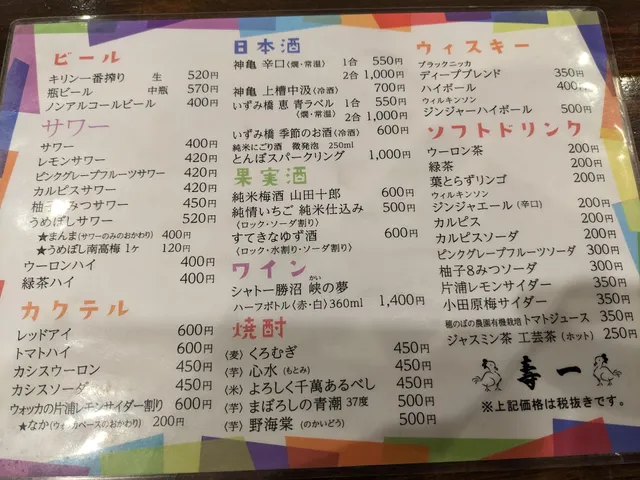 ビール
キリン一番搾り 生 520円
瓶ビール 中瓶 570円
ノンアルコールビール 400円
サワー
サワー 400円
レモンサワー 420円
ピンクグレープフルーツサワー 420円
カルピスサワー 420円
柚子&みつサワー 450円
うめぼしサワー 520円
★まんま(サワーのみのおかわり) 400円
★うめぼし南高梅 1ヶ 120円
ウーロンハイ 400円
緑茶ハイ 400円
カクテル
レッドアイ 600円
トマトハイ 600円
カシスウーロン 450円
カシスソーダ 450円
ウォッカの片浦レモンサイダー割り 600円
★なか(ウォッカベースのおかわり) 200円
日本酒
神亀 辛口(燗・常温) 1合 550円
2合 1,000円
神亀 上槽中汲(冷酒) 700円
いずみ橋 恵 青ラベル 1合 550円
(燗・常温) 2合 1,000円
いずみ橋 季節のお酒(冷酒) 600円
純米にごり酒 微発泡 250ml
とんぼスパークリング 1,000円
果実酒
純米梅酒 山田十郎 600円
純情いちご 純米仕込み 500円
(ロック・ソーダ割り)
すてきなゆず酒 600円
(ロック・水割り・ソーダ割り)
ワイン
シャトー勝沼 峡の夢
かい
ハーフボトル〈赤・白〉360ml 1,400円
焼酎
〈麦〉くろむぎ 450円
〈芋〉心水(もとみ) 450円
〈米〉よろしく千萬あるべし 450円
〈芋〉まぼろしの青潮 37度 500円
〈芋〉野海棠(のかいどう) 500円
ウィスキー
ブラックニッカ
ディープブレンド 350円
ハイボール 400円
ウィルキンソン
ジンジャーハイボール 500円
ソフトドリンク
ウーロン茶 200円
緑茶 200円
葉とらずリンゴ 200円
ウィルキンソン
ジンジャエール(辛口) 200円
カルピス 200円
カルピスソーダ 200円
ピンクグレープフルーツソーダ 300円
柚子&みつソーダ 300円
片浦レモンサイダー 350円
小田原梅サイダー 350円
穂のぼの農園有機栽培 トマトジュース 350円
ジャスミン茶 工芸茶(ホット) 250円
寿一
※上記価格は税抜きです。